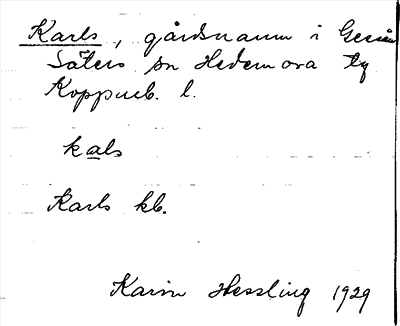 Karls, gårdsnamn i
Säters sn Hedemora tg
Koppueb. l.
kals
Karls kb.
Karin Hessling 1929